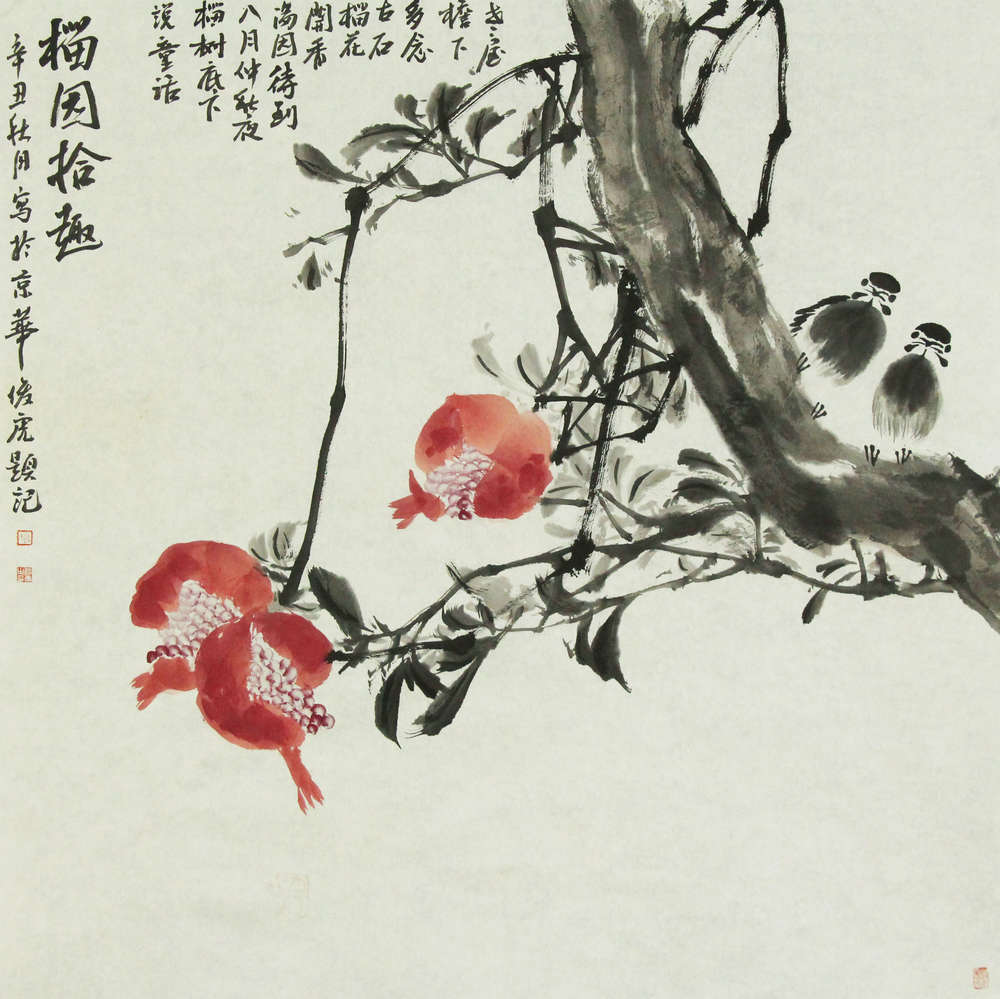 老屋
檐下
多念
古石
榴花
開香
满园待到
八月仲秋夜
榴树底下
說童話
榴园拾趣
辛丑秋月寫於京華俊虎題記